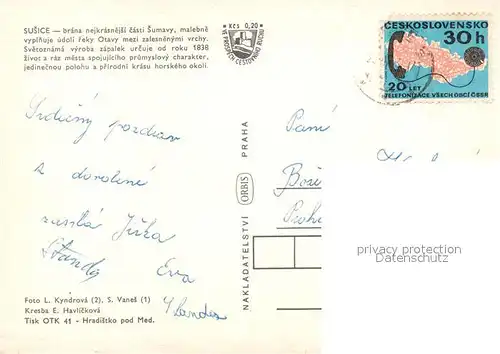 SUŠICE — brána nejkrásnější části Šumavy, malebně
vyplňuje údolí řeky Otavy mezi zalesněnými vrchy.
Světoznámá výroba zápalek určuje od roku 1838
život a ráz města spojujícího průmyslový charakter,
jedinečnou polohu a přírodní krásu horského okolí.
Kčs 0,20
VE PROSPĚCH CESTOVNÍHO RUCHU
ČESKOSLOVENSKO
30 h
20 LET
TELEFONIZACE VŠECH OBCÍ ČSSR
Srdečný pozdrav
z dovolené
zasílá
Standa
Eva
Paní
NAKLADATELSTVÍ ORBIS PRAHA
privacy protection
watermark
Foto L. Kyndrová (2), S. Vaneš (1)
Kresba E. Havlíčková
Tisk OTK 41 - Hradištko pod Med.